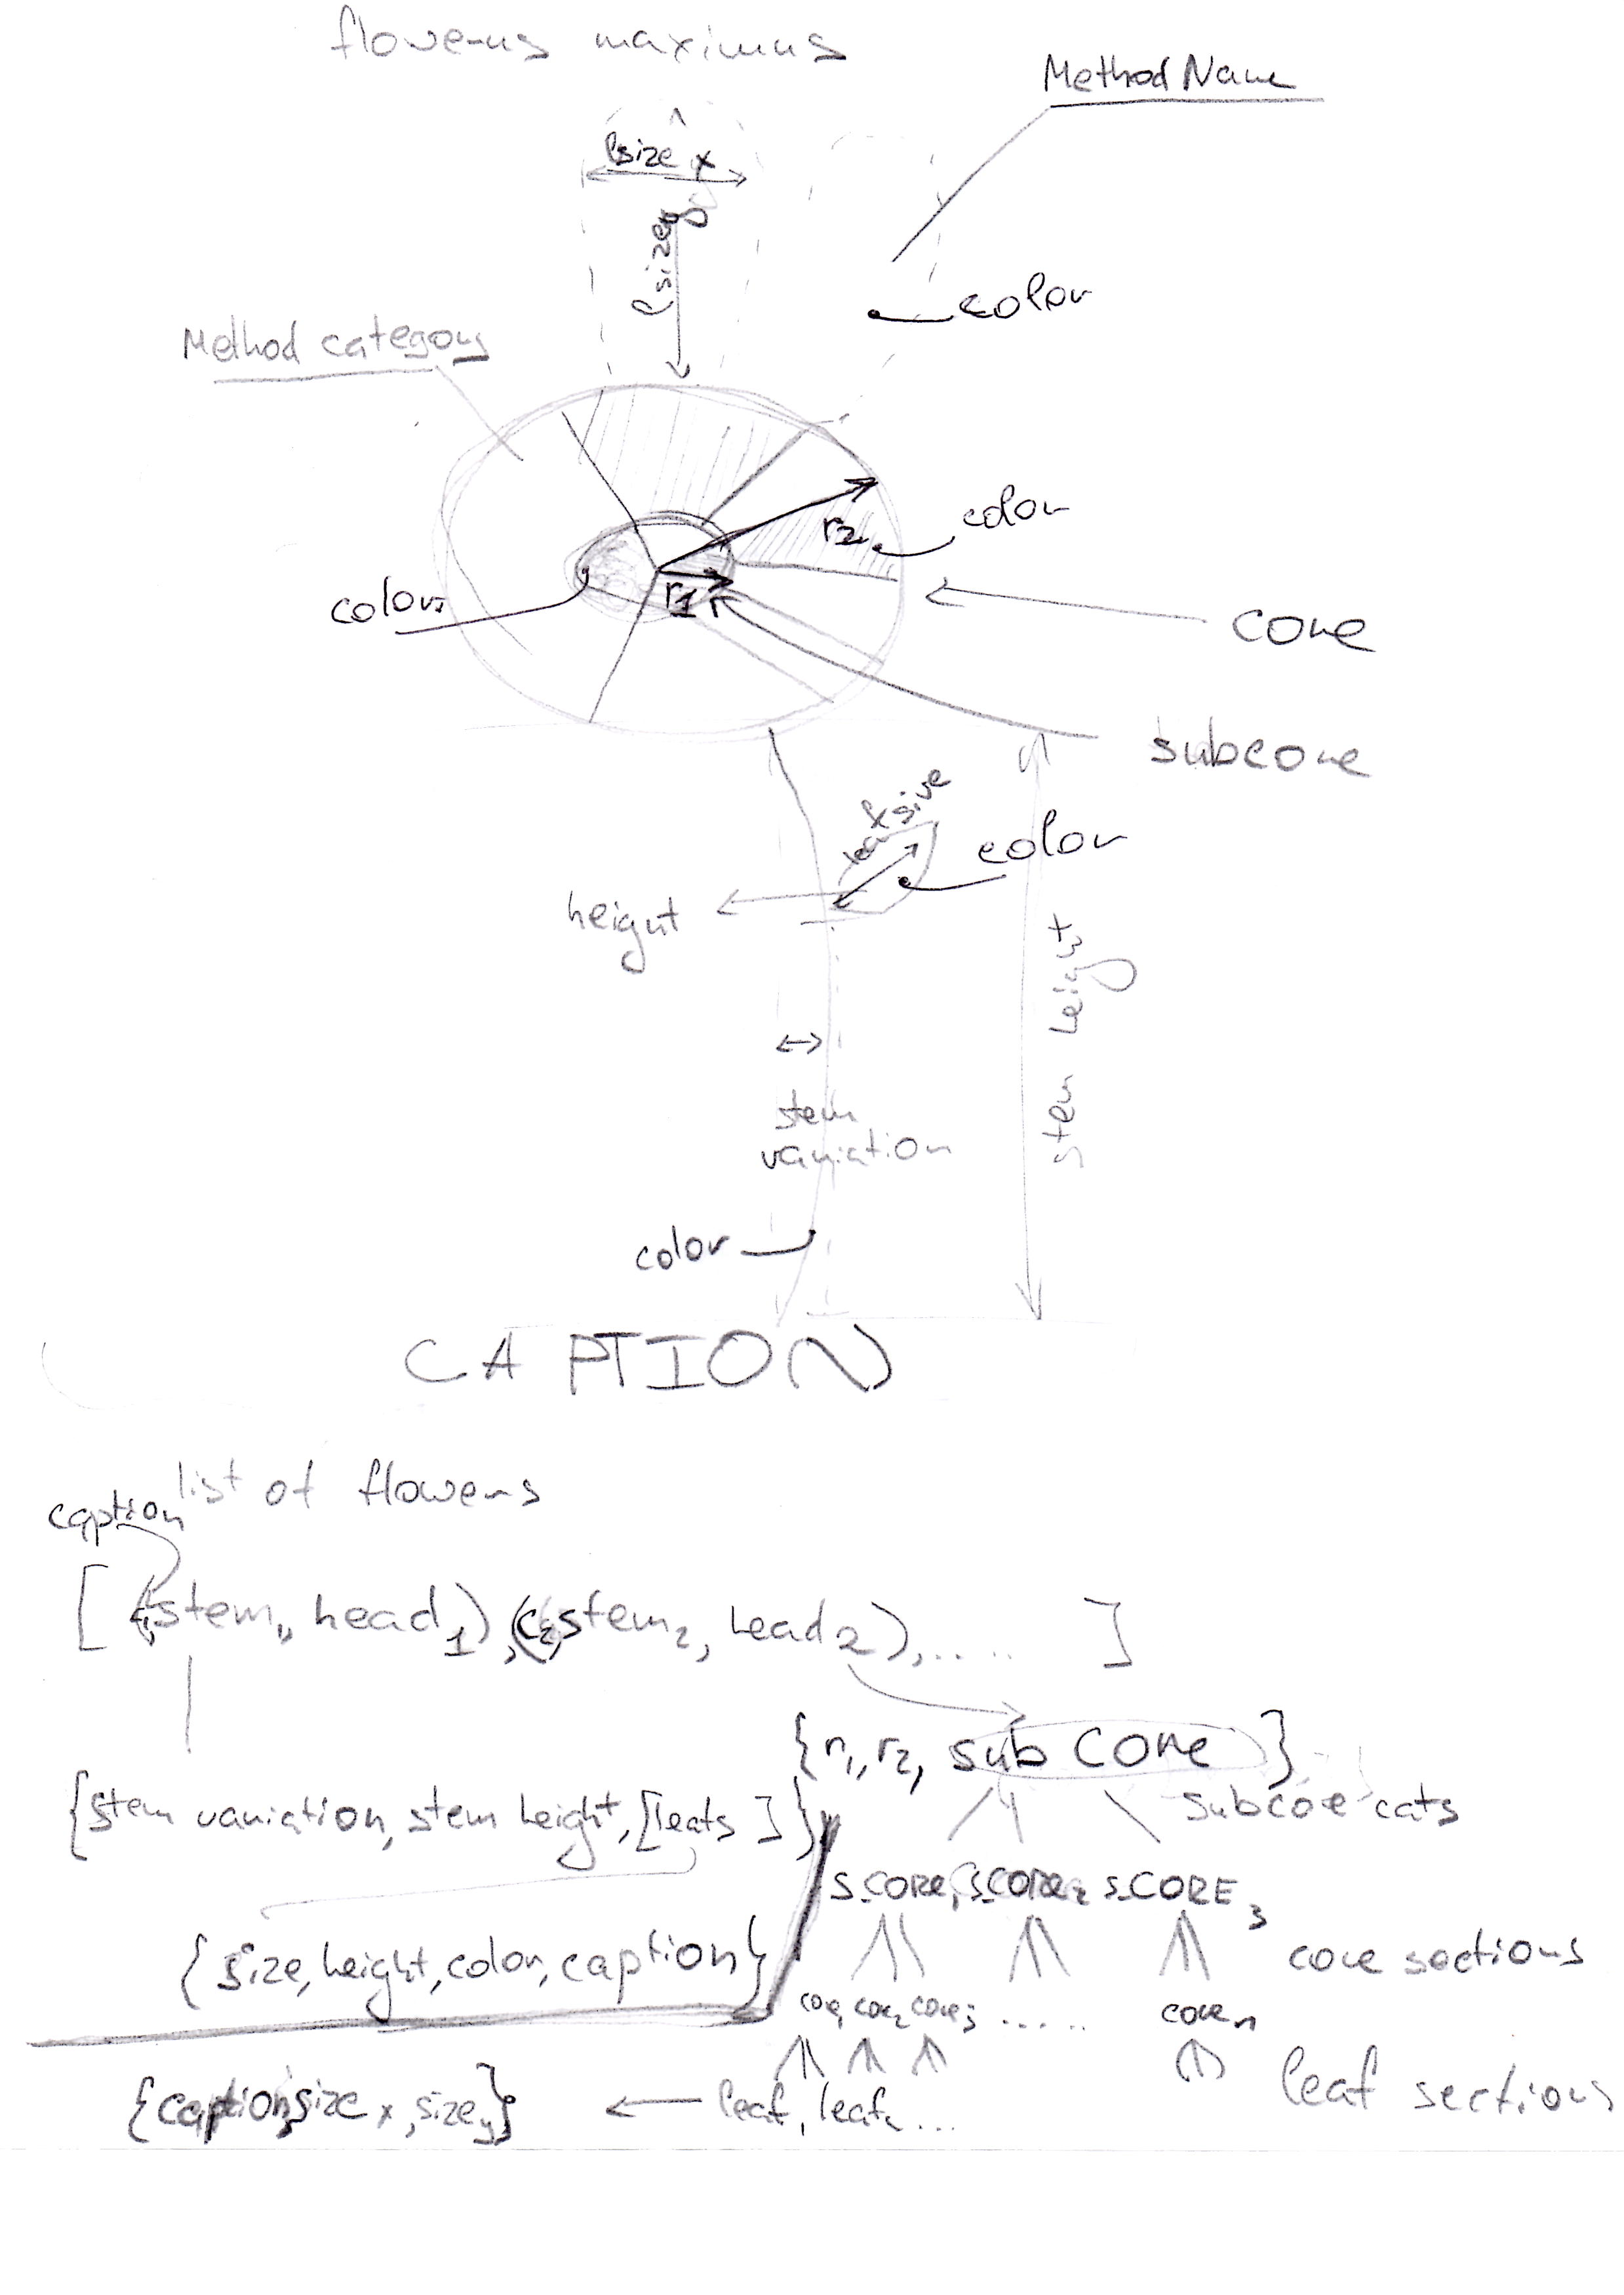 flowerus maximus
Method Name
lsize x
lsize y
color
Method category
color
r2
r1
color
core
subcore
leaf size
color
height
stem height
stem
variation
color
CAPTION
list of flowers
caption
[ (c1, stem1, head1), (c2, stem2, head2), ..... ]
{r1, r2, sub core }
subcore cats
{stem variation, stem height, [leafs ] }
s_core1 s_core2 s_CORE3
{size, height, color, caption}
core sections
core1 core2 core3 ..... coren
leaf sections
{caption, size x, size y}
leaf1 leaf2 ...